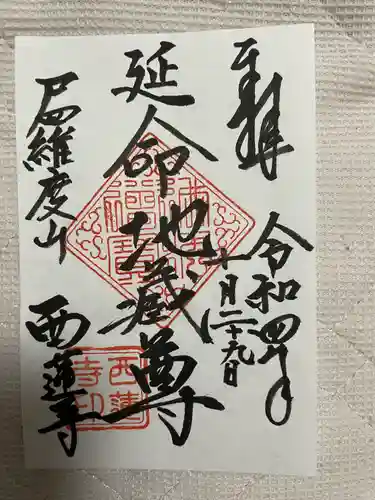 奉拝
令和四年
十一月二十九日
延命地蔵尊
尸羅維度山
西蓮寺
西蓮
寺印